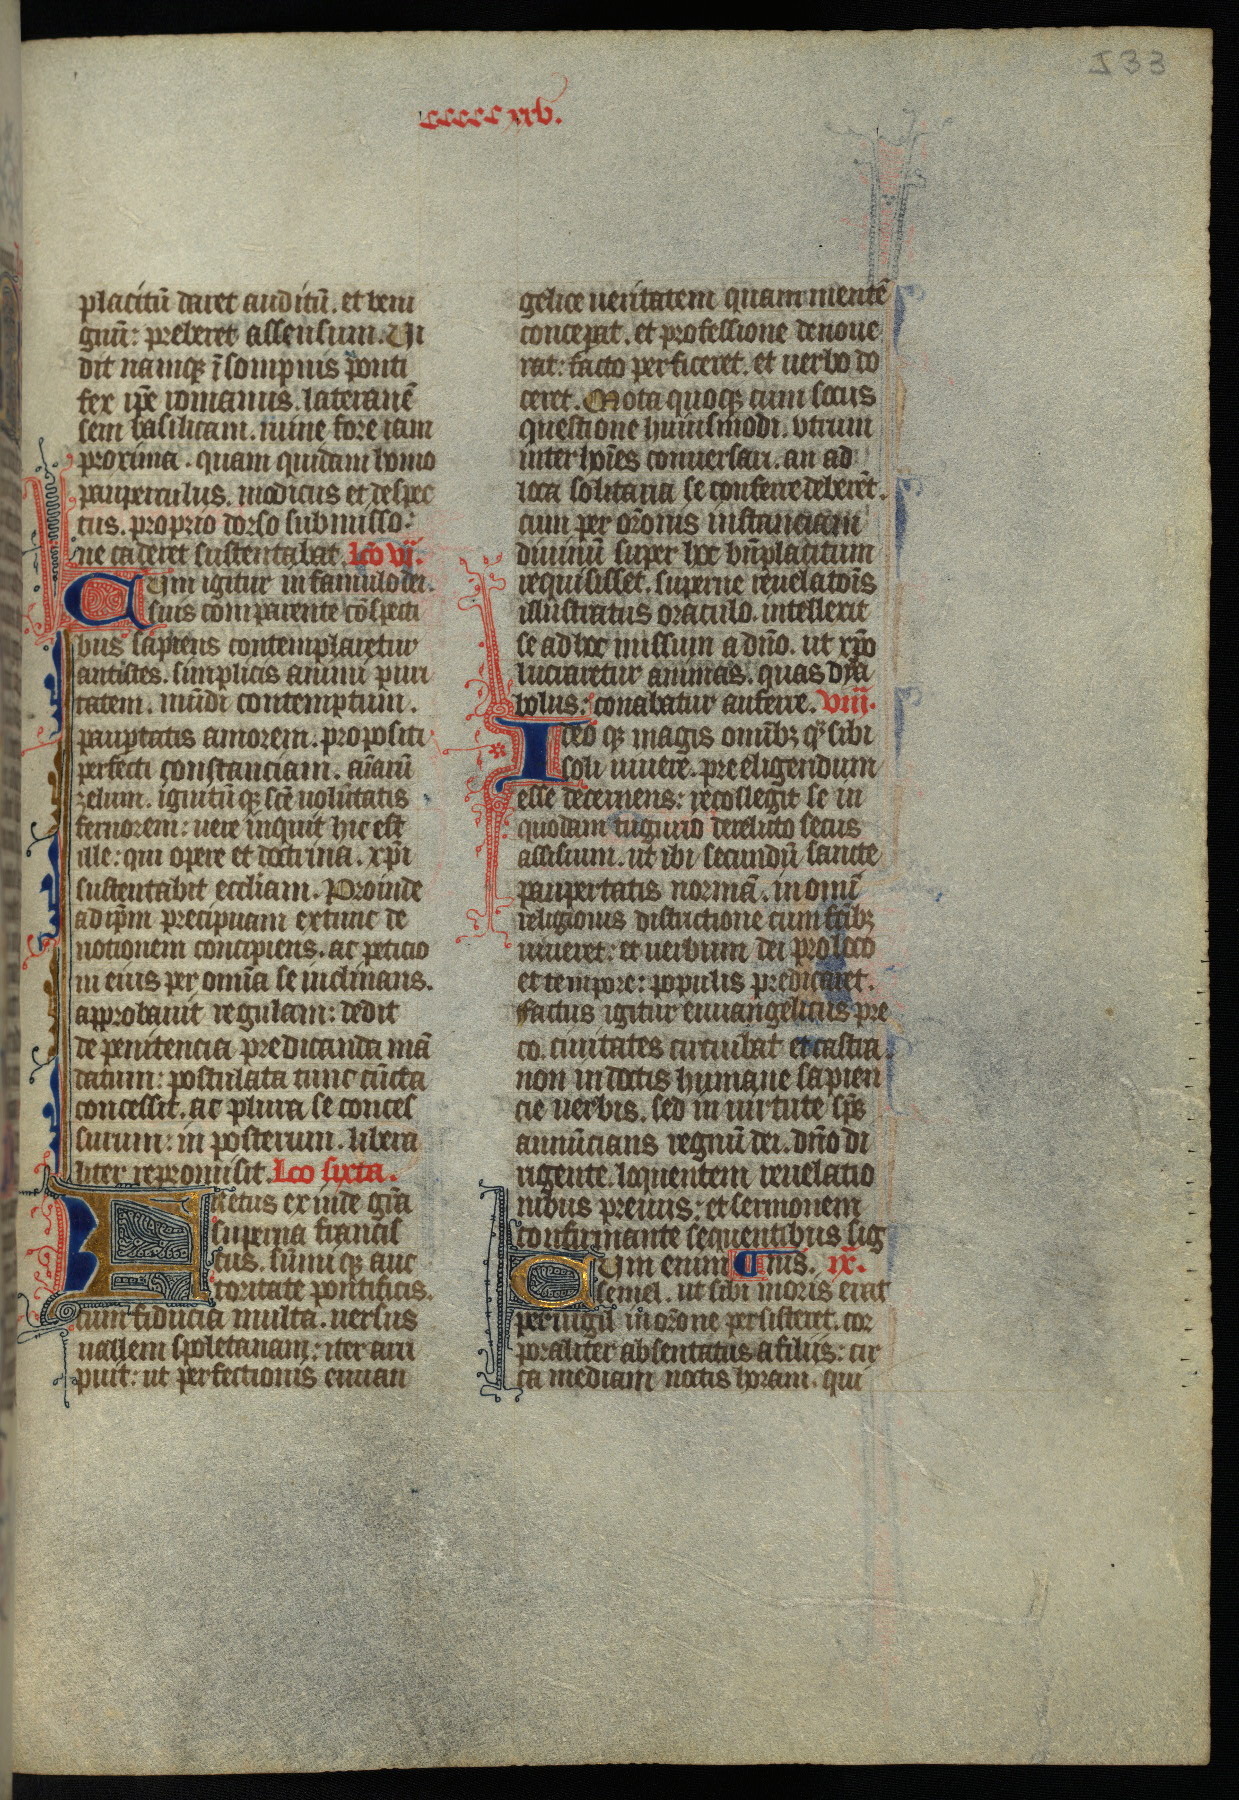 533
cccccxxv.
placitū daret auditū. et beni
gnū: preberet assensum. Vi
dit namqꝫ ī sompnis ponti
fex ip̄e romanus. lateranē
sem basilicam. ruine fore iam
proxima. quam quidam homo
pauperculus. modicus et despec
tus. proprio dorso submisso:
ne caderet sustentabat. lc̄o vij.
Cum igitur in famulo dei.
suis comparente cōspecti
bus sapiens contemplaretur
antistes. simplicis animi puri
tatem. mūdi contemptum.
paupertatis amorem. propositi
perfecti constanciam. aīarū
zelum. ignitū qꝫ sc̄e volūtatis
feruorem: uere inquit hic est
ille: qui opere et doctrina. xp̄i
sustentabit eccl̄iam. Proinde
ad ip̄m precipuam extunc de
uotionem concipiens. ac peticio
ni eius per om̄ia se inclinans.
approbauit regulam: dedit
de penitencia predicanda mā
datum: postulata tunc cūcta
concessit. ac plura se conces
surum: in posterum. libera
liter repromisit. Lc̄o sixta.
Fretus exinde gr̄a
superna francis
cus. sūmi qꝫ auc
toritate pontificis.
cum fiducia multa. uersus
uallem spoletanam: iter arri
puit: ut perfectionis euuan
gelice ueritatem quam mente
conceperat. et professione denoue
rat: facto perficeret. et uerbo do
ceret. Mota quoqꝫ cum socus
questione huiusmodi. vtrum
inter hoīes conuersari. an ad
loca solitaria se conferre deberēt.
cum per or̄onis instanciam
diuinū super hoc bn̄placitum
requisisset. superne reuelatōis
illustratus oraculo. intellexit
se ad hoc missum a dn̄o. ut xp̄o
lucraretur animas. quas dya
bolus: conabatur auferre. viij.
Ideo qꝫ magis omībꝫ qͣ sibi
soli uiuere. preeligendum
esse decernens: recollegit se in
quodam tugurio derelicto secus
assisium. ut ibi secundū sancte
paupertatis normā. in omī
religionis districtione cum fr̄ibꝫ
uiueret: et uerbum dei pro loco
et tempore: populis predicaret.
Factus igitur euuangelicus pre
co. ciuitates circuibat et castra.
non in doctis humane sapien
cie uerbis. sed in uirtute sp̄s
annūcians regnū dei. dn̄o di
rigente. loquentem reuelatio
nibus preuiis: et sermonem
confirmante sequentibus sig
Cum enim nis. ix.
semel. ut sibi moris erat
peruigil in or̄one persisteret. cor
poraliter absentatus a filiis: cir
ca mediam noctis horam. qui